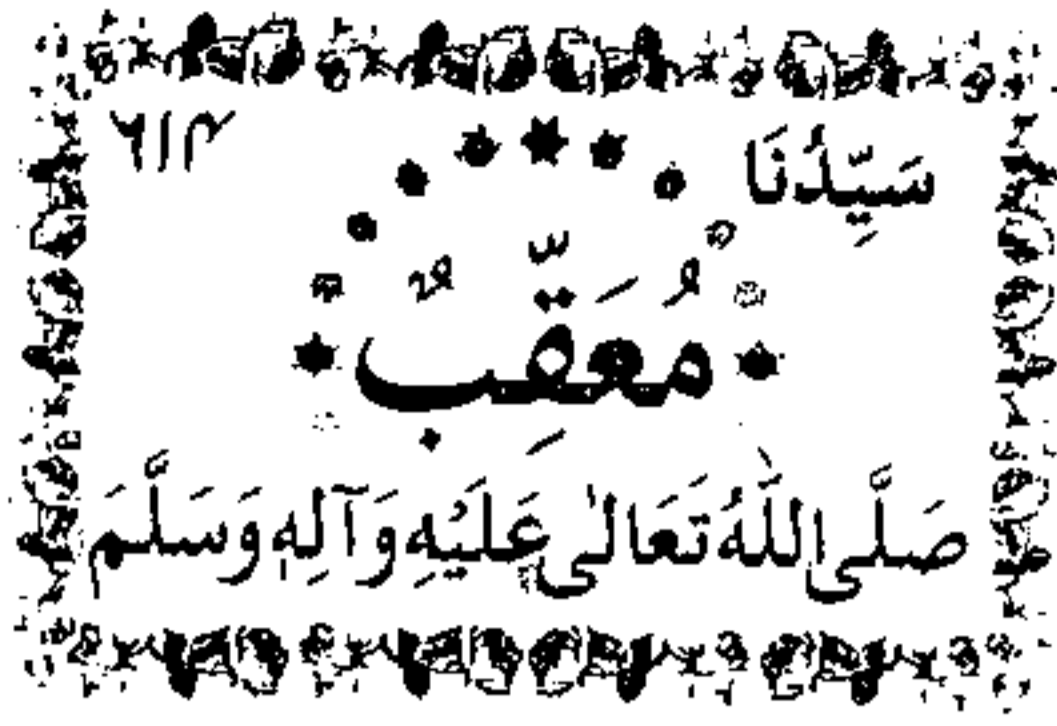 سَيِّدُنَا ۶۱۴
مُعَقِّبٌ
صَلَّى اللّٰهُ تَعَالٰى عَلَيْهِ وَآلِهٖ وَسَلَّمَ